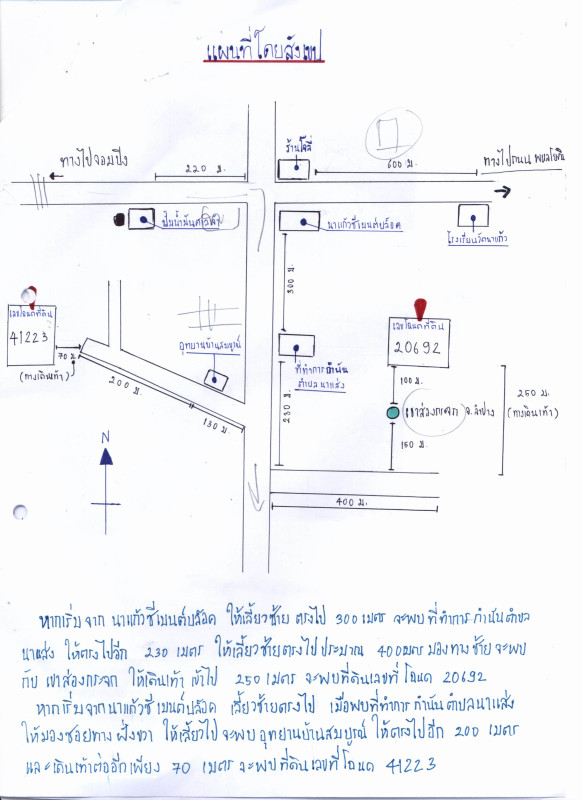 แผนที่โดยสังเขป
ร้านโจลี่
ทางไปจอมปิง
220 ม.
600 ม.
ทางไปถนน พหลโยธิน
ปั๊มน้ำมัน
นาแก้วซีเมนต์บล๊อค
โรงเรียนวัดนาแก้ว
300 ม.
เลขโฉนดที่ดิน
41223
เลขโฉนดที่ดิน
20692
อุทยานบ้านสมบูรณ์
70 ม.
(ทางเดินเท้า)
ที่ทำการกำนัน
ตำบล นาแส่ง
100 ม.
200 ม.
130 ม.
230 ม.
เขาส่องกระจก จ.ลำปาง
250 ม.
(ทางเดินเท้า)
150 ม.
N
400 ม.
หากเริ่มจาก นาแก้วซีเมนต์บล๊อค ให้เลี้ยวซ้าย ตรงไป 300 เมตร จะพบที่ทำการกำนันตำบล
นาแส่ง ให้ตรงไปอีก 230 เมตร ให้เลี้ยวซ้ายตรงไปประมาณ 400เมตร มองทางซ้าย จะพบ
กับ เขาส่องกระจก ให้เดินเท้า เข้าไป 250 เมตร จะพบที่ดินเลขที่ โฉนด 20692
หากเริ่มจากนาแก้วซีเมนต์บล๊อค เลี้ยวซ้ายตรงไป เมื่อพบที่ทำการกำนันตำบลนาแส่ง
ให้มองซอยทาง ฝั่งขวา ให้เลี้ยวไป จะพบ อุทยานบ้านสมบูรณ์ ให้ตรงไปอีก 200 เมตร
และเดินเท้าต่ออีกเพียง 70 เมตร จะพบที่ดินเลขที่โฉนด 41223